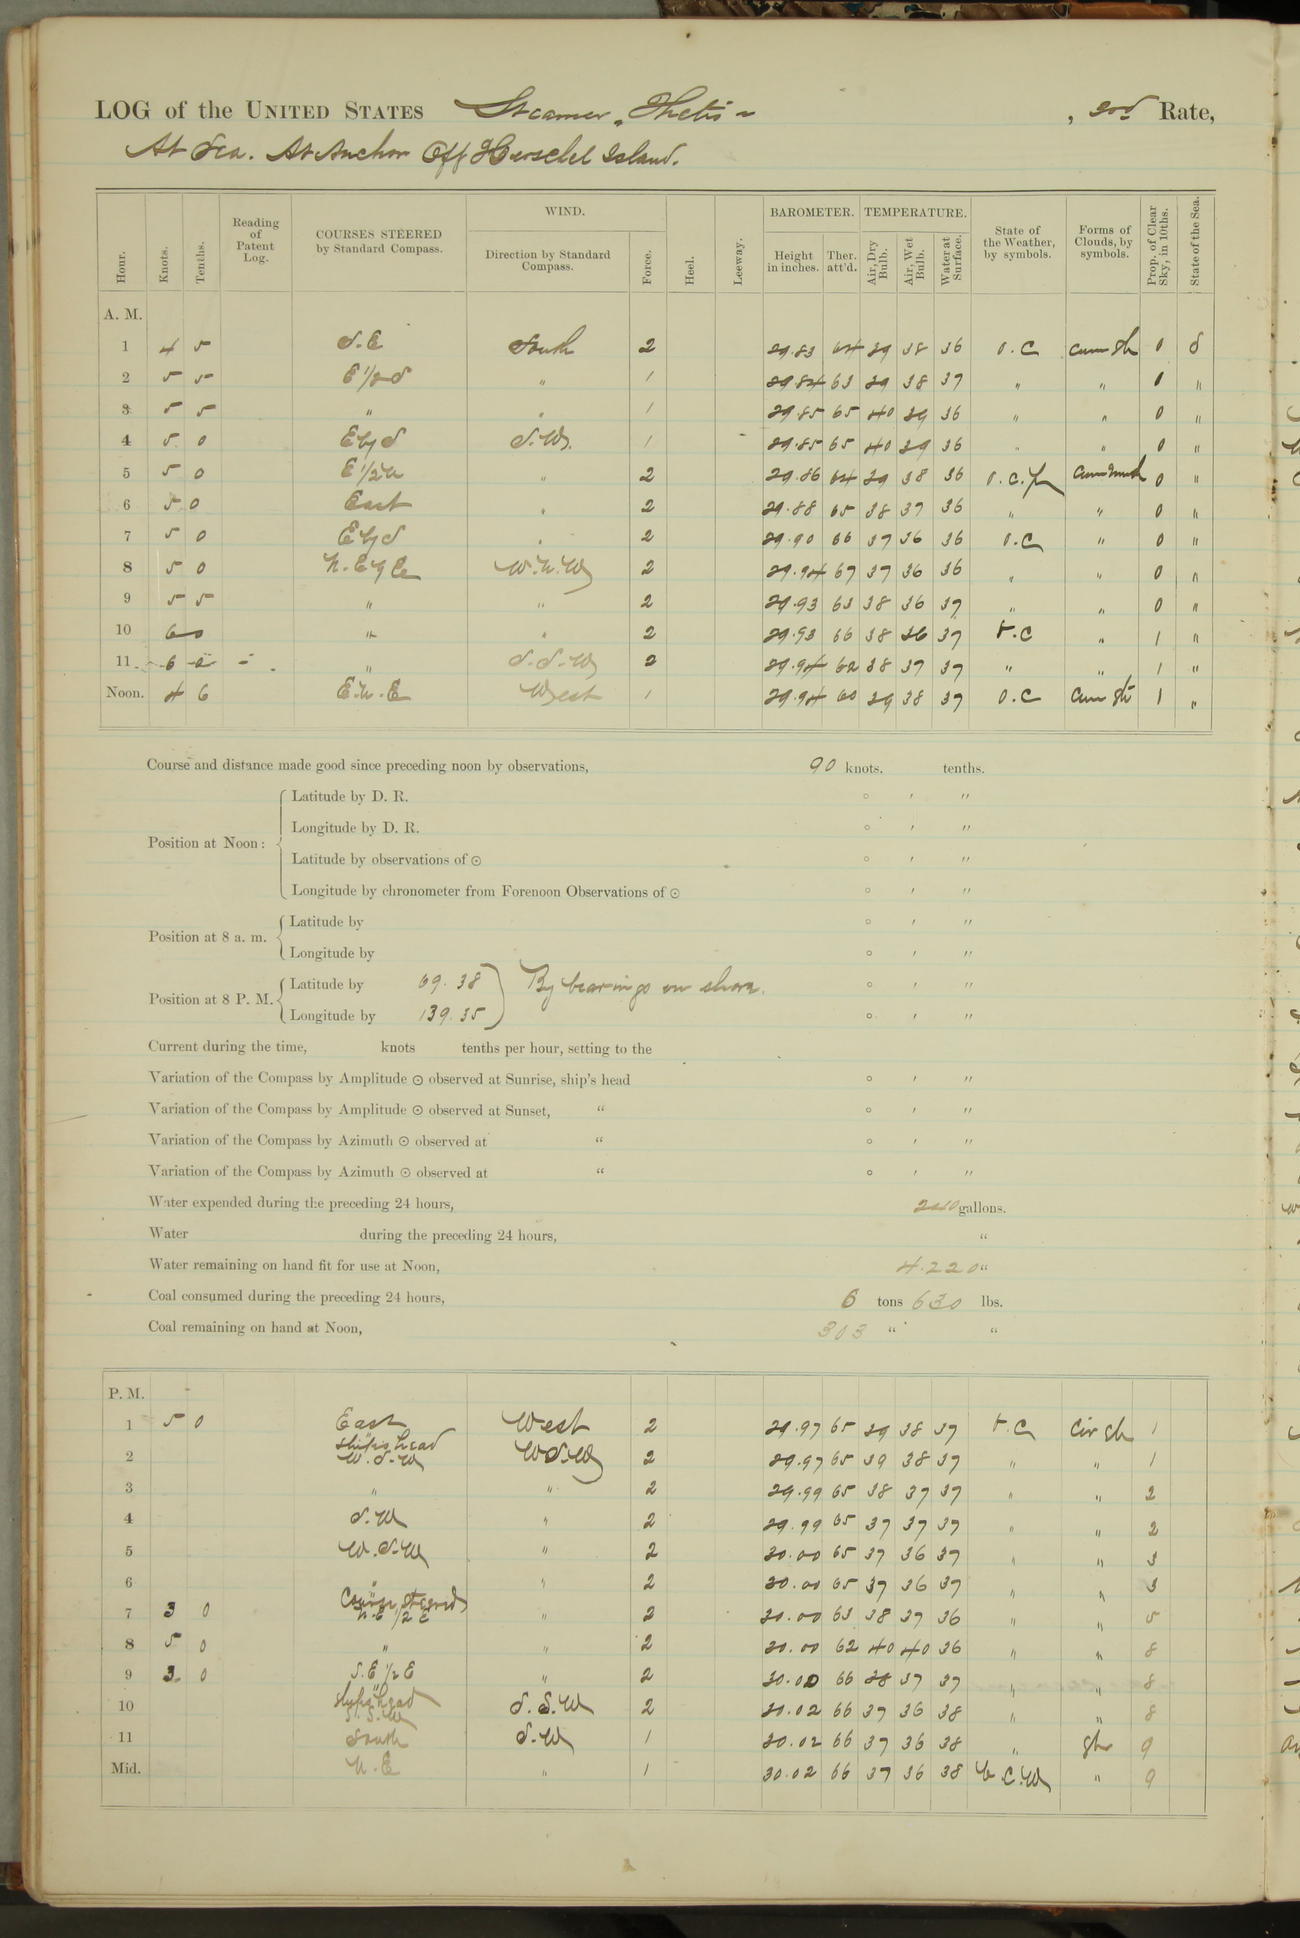 LOG of the UNITED STATES Steamer "Thetis" , 2nd Rate,
At Sea. At Anchor Off Herschel Island.
Hour. Knots. Tenths. Reading of Patent Log. COURSES STEERED by Standard Compass. WIND. Direction by Standard Compass. Force. Heel. Leeway. BAROMETER. Height in inches. Ther. att'd. TEMPERATURE. Air, Dry Bulb. Air, Wet Bulb. Water at Surface. State of the Weather, by symbols. Forms of Clouds, by symbols. Prop. of Clear Sky, in 10ths. State of the Sea.
A. M.
1 4 5 S.E South 2 29.83 64 39 38 36 O.C Cum Str 0 S
2 5 5 E 1/2 S " 1 29.84 63 39 38 37 " " 0 "
3 5 5 " " 1 29.85 65 40 39 36 " " 0 "
4 5 0 E by S S.W. 1 29.85 65 40 39 36 " " 0 "
5 5 0 E 1/2 N " 2 29.86 64 39 38 36 O.C. 0 "
6 5 0 East " 2 29.88 65 38 37 36 " " 0 "
7 5 0 E by S " 2 29.90 66 37 36 36 O.C " 0 "
8 5 0 N.E by E W.N.W 2 29.94 67 37 36 36 " " 0 "
9 5 5 " " 2 29.93 63 38 36 37 " " 0 "
10 6 0 " " 2 29.93 66 38 36 37 " 1 "
11 6 0 " S.S.W 2 29.94 62 38 37 37 " " 1 "
Noon. 4 6 E.N.E West 1 29.94 60 39 38 37 O.C Cum Str 1 "
Course and distance made good since preceding noon by observations, 90 knots. tenths.
Position at Noon: Latitude by D. R. ° ' "
Longitude by D. R. ° ' "
Latitude by observations of ☉ ° ' "
Longitude by chronometer from Forenoon Observations of ☉ ° ' "
Position at 8 a. m. Latitude by ° ' "
Longitude by ° ' "
Position at 8 P. M. Latitude by 69. 38 By bearings on shore. ° ' "
Longitude by 139. 35 ° ' "
Current during the time, knots tenths per hour, setting to the
Variation of the Compass by Amplitude ☉ observed at Sunrise, ship's head ° ' "
Variation of the Compass by Amplitude ☉ observed at Sunset, " ° ' "
Variation of the Compass by Azimuth ☉ observed at " ° ' "
Variation of the Compass by Azimuth ☉ observed at " ° ' "
Water expended during the preceding 24 hours, 240 gallons.
Water during the preceding 24 hours, "
Water remaining on hand fit for use at Noon, 4.220 "
Coal consumed during the preceding 24 hours, 6 tons 630 lbs.
Coal remaining on hand at Noon, 303 " "
P. M.
1 5 0 East West 2 29.97 65 39 38 37 Cir Str 1
ships head
2 W.S.W WSW 2 29.97 65 39 38 37 " " 1
3 " " 2 29.99 65 38 37 37 " " 2
4 S.W " 2 29.99 65 37 37 37 " " 2
5 W.S.W " 2 30.00 65 37 36 37 " " 3
6 " " 2 30.00 65 37 36 37 " " 3
Course steered
7 3 0 N.E 1/2 E " 2 30.00 63 38 37 36 " " 5
8 5 0 " " 2 30.00 62 40 40 36 " " 8
9 3 0 S.E 1/2 E " 2 30.00 66 38 37 37 " " 8
ships head
10 S.S.W S.S.W 2 30.02 66 37 36 38 " " 8
11 South S.W 1 30.02 66 37 36 38 " Str 9
Mid. N.E " 1 30.02 66 37 36 38 " 9